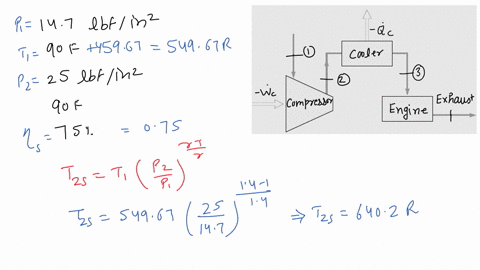 P₁= 14.7 lbf/in²
T₁= 90F +459.67 = 549.67R
P₂= 25 lbf/in²
90F
ηₛ= 75%. = 0.75
T₂ₛ = T₁ (P₂/P₁)^(rT/r)
T₂ₛ = 549.67 (25/14.7)^(1.4-1/1.4) ⇒ T₂ₛ = 640.2 R
-Q̇c
①
Cooler
②
③
-Ẇc
Compressor
Engine
Exhaust